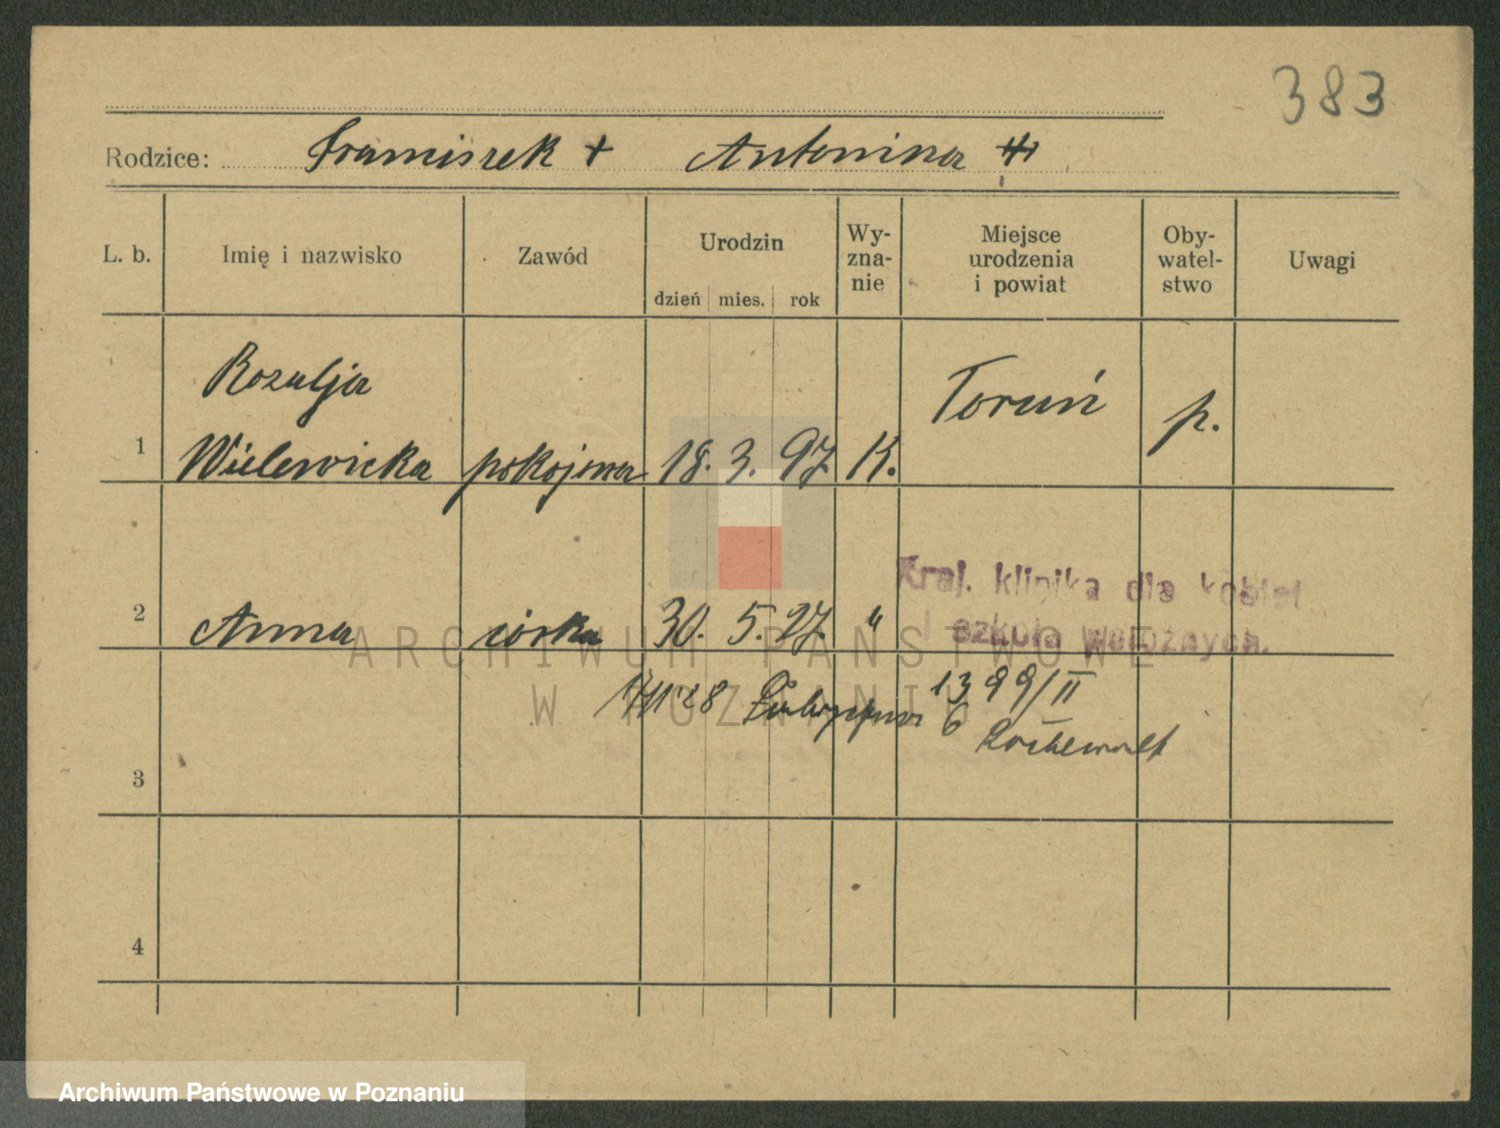 383
Rodzice: Franciszek + Antonina
L. b.
Imię i nazwisko
Zawód
Urodzin
dzień mies. rok
Wy-
zna-
nie
Miejsce
urodzenia
i powiat
Oby-
watel-
stwo
Uwagi
Rozalja
1 Wielewicka pokojowa 18. 3. 97. K. Toruń p.
Kraj. klinika dla kobiet
i szkoła położnych.
2 Anna córka 30. 5. 27. "
1399/II
28 6
3
4
ARCHIWUM PAŃSTWOWE
W POZNANIU
Archiwum Państwowe w Poznaniu